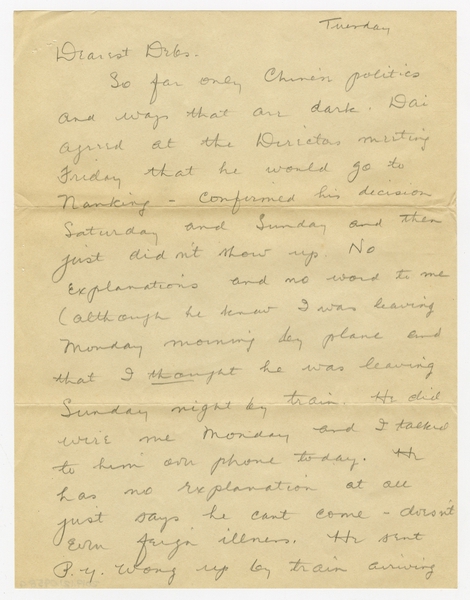 Tuesday
Dearest Debs.
So far only Chinese politics
and ways that are dark. Dai
agreed at the Directors meeting
Friday that he would go to
Nanking - confirmed his decision
Saturday and Sunday and then
just didn't show up. No
explanations and no word to me
(although he knew I was leaving
Monday morning by plane and
that I thought he was leaving
Sunday night by train. He did
wire me Monday and I talked
to him over phone today. He
has no explanation at all
just says he cant come - doesn't
even feign illness. He sent
P.Y. Wong up by train arriving